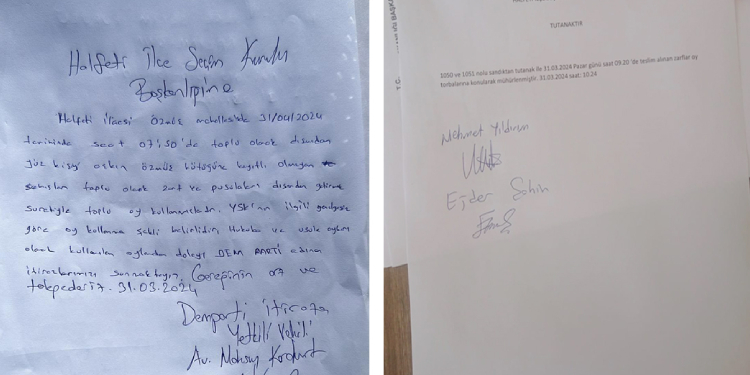 Halfeti İlçe Seçim Kurulu
Başkanlığına
Halfeti ilçesi Özmüş mahallesinde 31/04/2024
tarihinde saat 07:30'da toplu olarak dışarıdan
yüz kişiyi aşkın Özmüş kütüğüne kayıtlı olmayan
şahıslar toplu olarak zarf ve pusulaları dışarıdan getirmek
suretiyle toplu oy kullanmıştır. YSK'nın ilgili
göre oy kullanma şekli bellidir. Hukuka ve usule aykırı
olarak kullanılan oylardan dolayı DEM PARTİ adına
itirazlarımızı sunmaktayız. Gereğinin arz ve
talep ederiz. 31.03.2024
Demparti itiraza
Yetkili Vekili
Av.
TUTANAKTIR
1050 ve 1051 nolu sandıktan tutanak ile 31.03.2024 Pazar günü saat 09.20 'de teslim alınan zarflar oy
torbalarına konularak mühürlenmiştir. 31.03.2024 saat: 10:24
Mehmet Yıldırım
Ejder Şahin